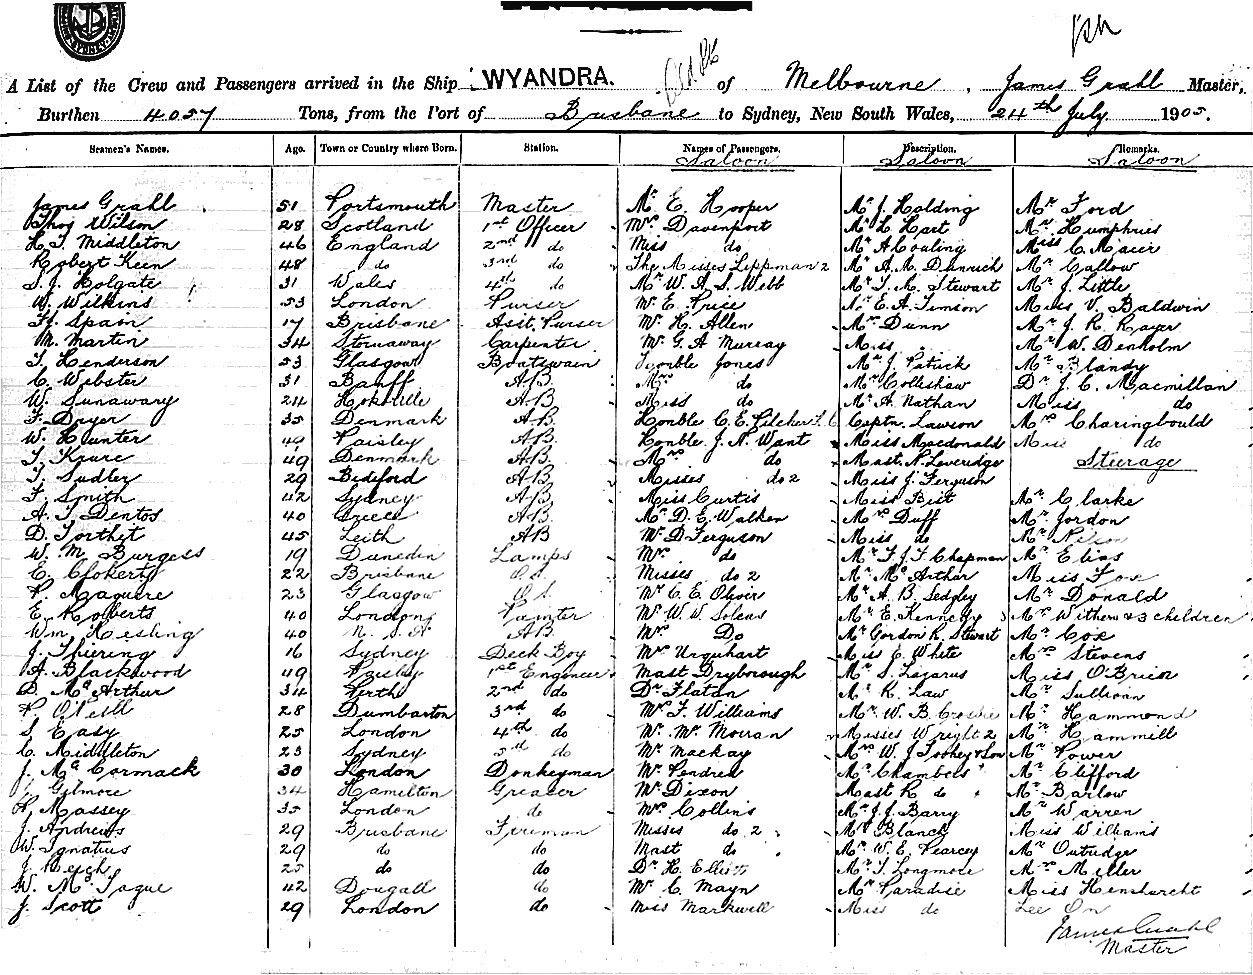 A List of the Crew and Passengers arrived in the Ship WYANDRA. of Melbourne, James Grahl Master,
Burthen 4057 Tons, from the Port of Brisbane to Sydney, New South Wales, 24th July 1905.
Seamen's Names. Age. Town or Country where Born. Station. Names of Passengers. Description. Remarks.
Saloon Saloon Saloon
James Grahl 51 Portsmouth Master Mr E. Hooper Mr J. Holding Mr Ford
Thos Wilson 28 Scotland 1st Officer Mrs Davenport Mr L Hart Mr Humphries
H. J. Middleton 46 England 2nd do Miss do Mr A Couling Miss C. Macer
Robert Keen 48 do 3rd do The Misses Lippman 2 Mr A. M. Mr Callow
S. J. Holgate 31 Wales 4th do Mr W. A. S. Webb Mr T. M. Stewart Mr J. Little
W. Wilkins 53 London Purser Mr E. Price Mr E. A. Timson Miss V. Baldwin
Spain 17 Brisbane Asst. Purser Mr H. Allen Mr Dunn Mr J. R.
M. Martin 34 Carpenter Mr G. A Murray Miss Mr W. Denholm
T. Henderson 53 Glasgow Boatswain Jones Mr J. Patrick Mr Blandy
C. Webster 31 Banff A.B. Mrs do Mr Colleshaw Dr J. C. Macmillan
W. Sunaway 24 A.B. Miss do Mr A. Nathan Miss do
F. Dryer 35 Denmark A.B. Honble C. E. Pilcher Captn. Lawson Mrs Charingbould
W. Hunter 49 Paisley A.B. Honble J. H. Want Miss Macdonald Miss do
49 Denmark A.B. Mrs do Mast. N. Leveridge Steerage
T. Sudler 29 Bideford A.B. Misses do 2 Miss J. Ferguson
F. Smith 42 Sydney A.B. Miss Curtis Miss Mr Clarke
A. T. Dentos 40 Greece A.B. Mr D. E. Walker Mrs Duff Mr Jordon
D. Torthet 45 Leith A B Mr D. Ferguson Miss do Mr
W. M. Burgess 19 Dunedin Lamps Mrs do Mr F. J. T Chapman Mr Elias
E. 22 Brisbane Misses do 2 Mr McArthur Miss Fox
P. Maguire 23 Glasgow Mr C. E. Mr A. B. Sedgley Mr Donald
E. Roberts 40 London Painter Mr W. W. Mr E. Kennedy Mrs Withers & 3 children
Wm. Hesling 40 A.B. Mrs Do Mr Gordon R. Stewart Mr Cox
J. Thiering 16 Sydney Deck Boy Mrs Urquhart Miss E. White Mrs Stevens
A. Blackwood 49 Paisley 1st Engineer Mast Dryborough Mr S. Lazarus Miss O'Brien
D. McArthur 34 Perth 2nd do Dr Flatan Mr R. Law Mr Sullivan
28 Dumbarton 3rd do Mr F. Williams Mr W. B. Mr Hammond
S Easy 25 London 4th do Mr Mc Moiran Misses Wright 2 Mr Hammill
C. Middleton 23 Sydney 5th do Mr Mackay Mr W. J. Toohey & Son Mr Power
J. McCormack 30 London Donkeyman Mr Pendred Mrs Chambers Mr Clifford
J. Gilmore 34 Hamilton Greaser Mr Dixon Mast R do Mr Barlow
Massey 35 London do Mrs Collins Mr J. J. Barry Mr Warren
J. Andrews 29 Brisbane Fireman Misses do 2 Mr Blanch Miss Williams
W. Ignatius 29 do do Mast do Mr W. E. Pearcey Mr Outridge
J. 25 do do Dr H. Elliott Mr T. Longmore Mrs Miller
W. McTague 42 Dougall do Mr C. Mayn Mrs Paradise Miss
J. Scott 29 London do Miss Markwell Miss do Lee On
James Grahl
Master